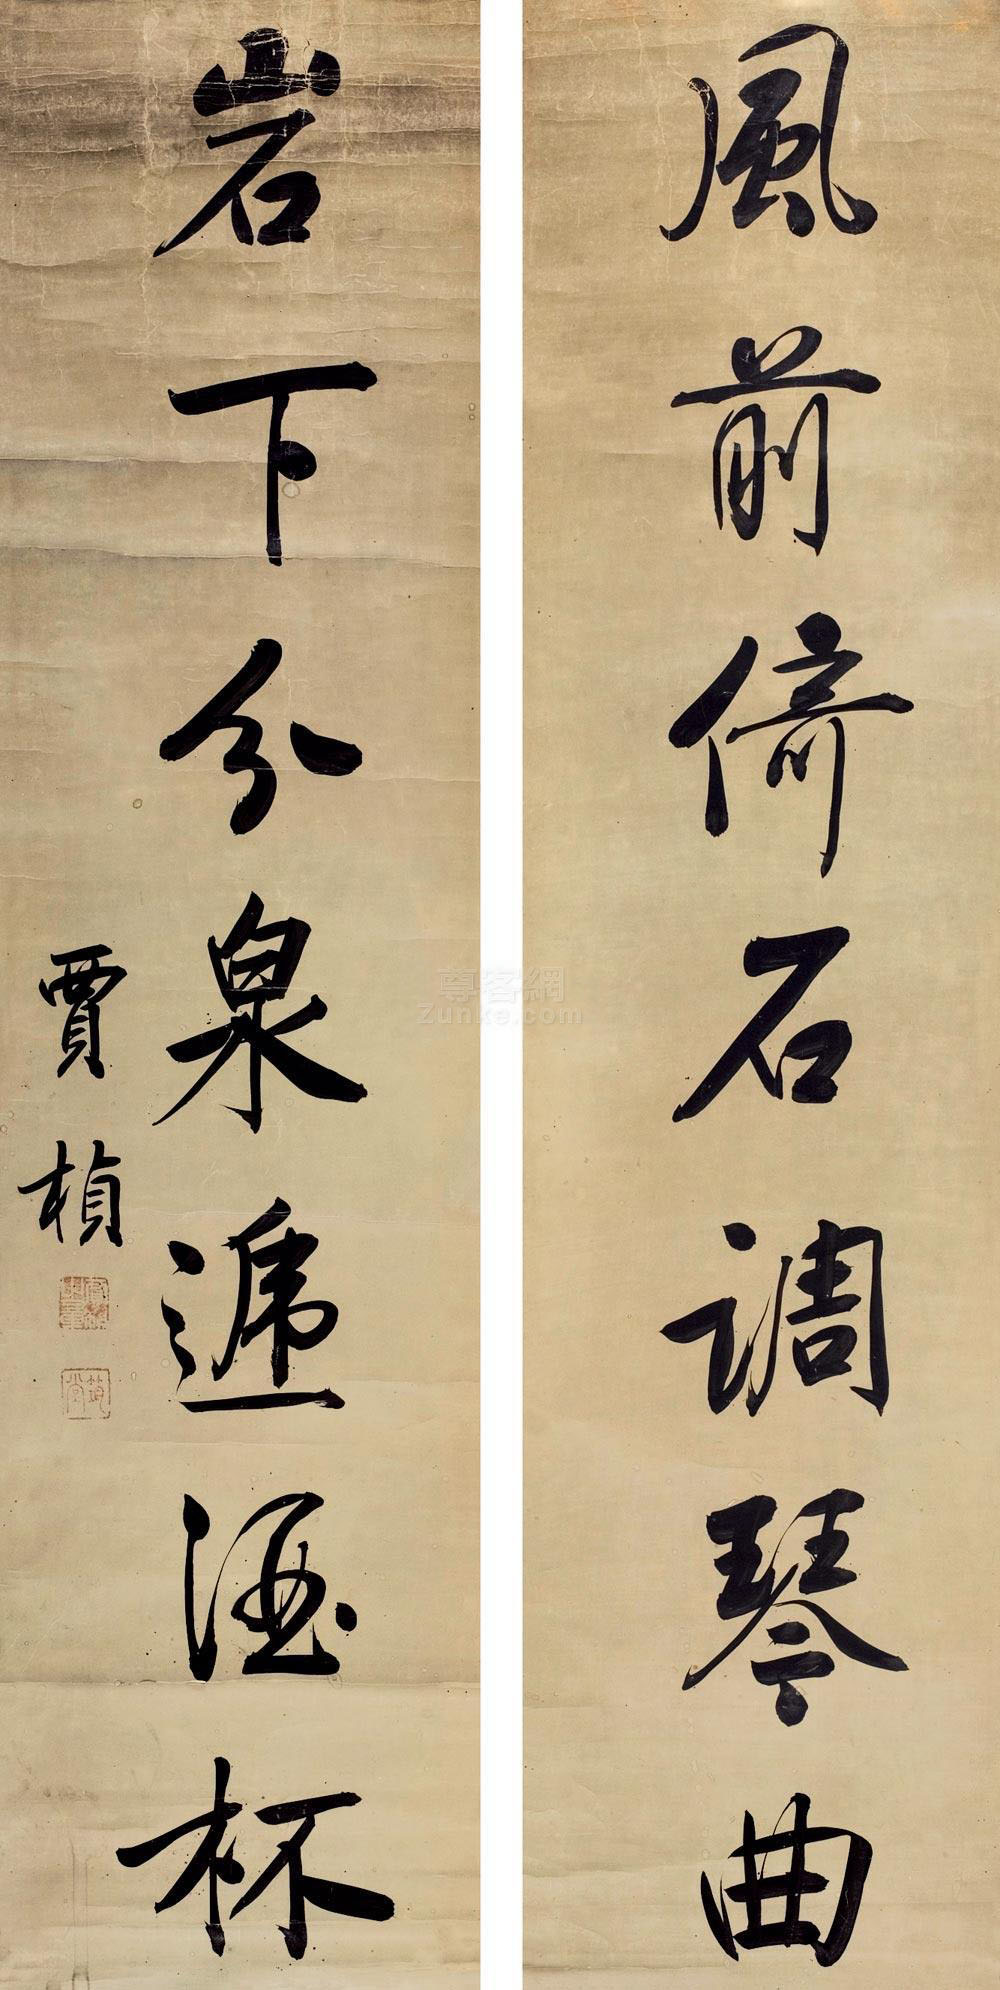 風前倚石調琴曲
岩下分泉遞酒杯
賈楨
尊客網
Zunke.com